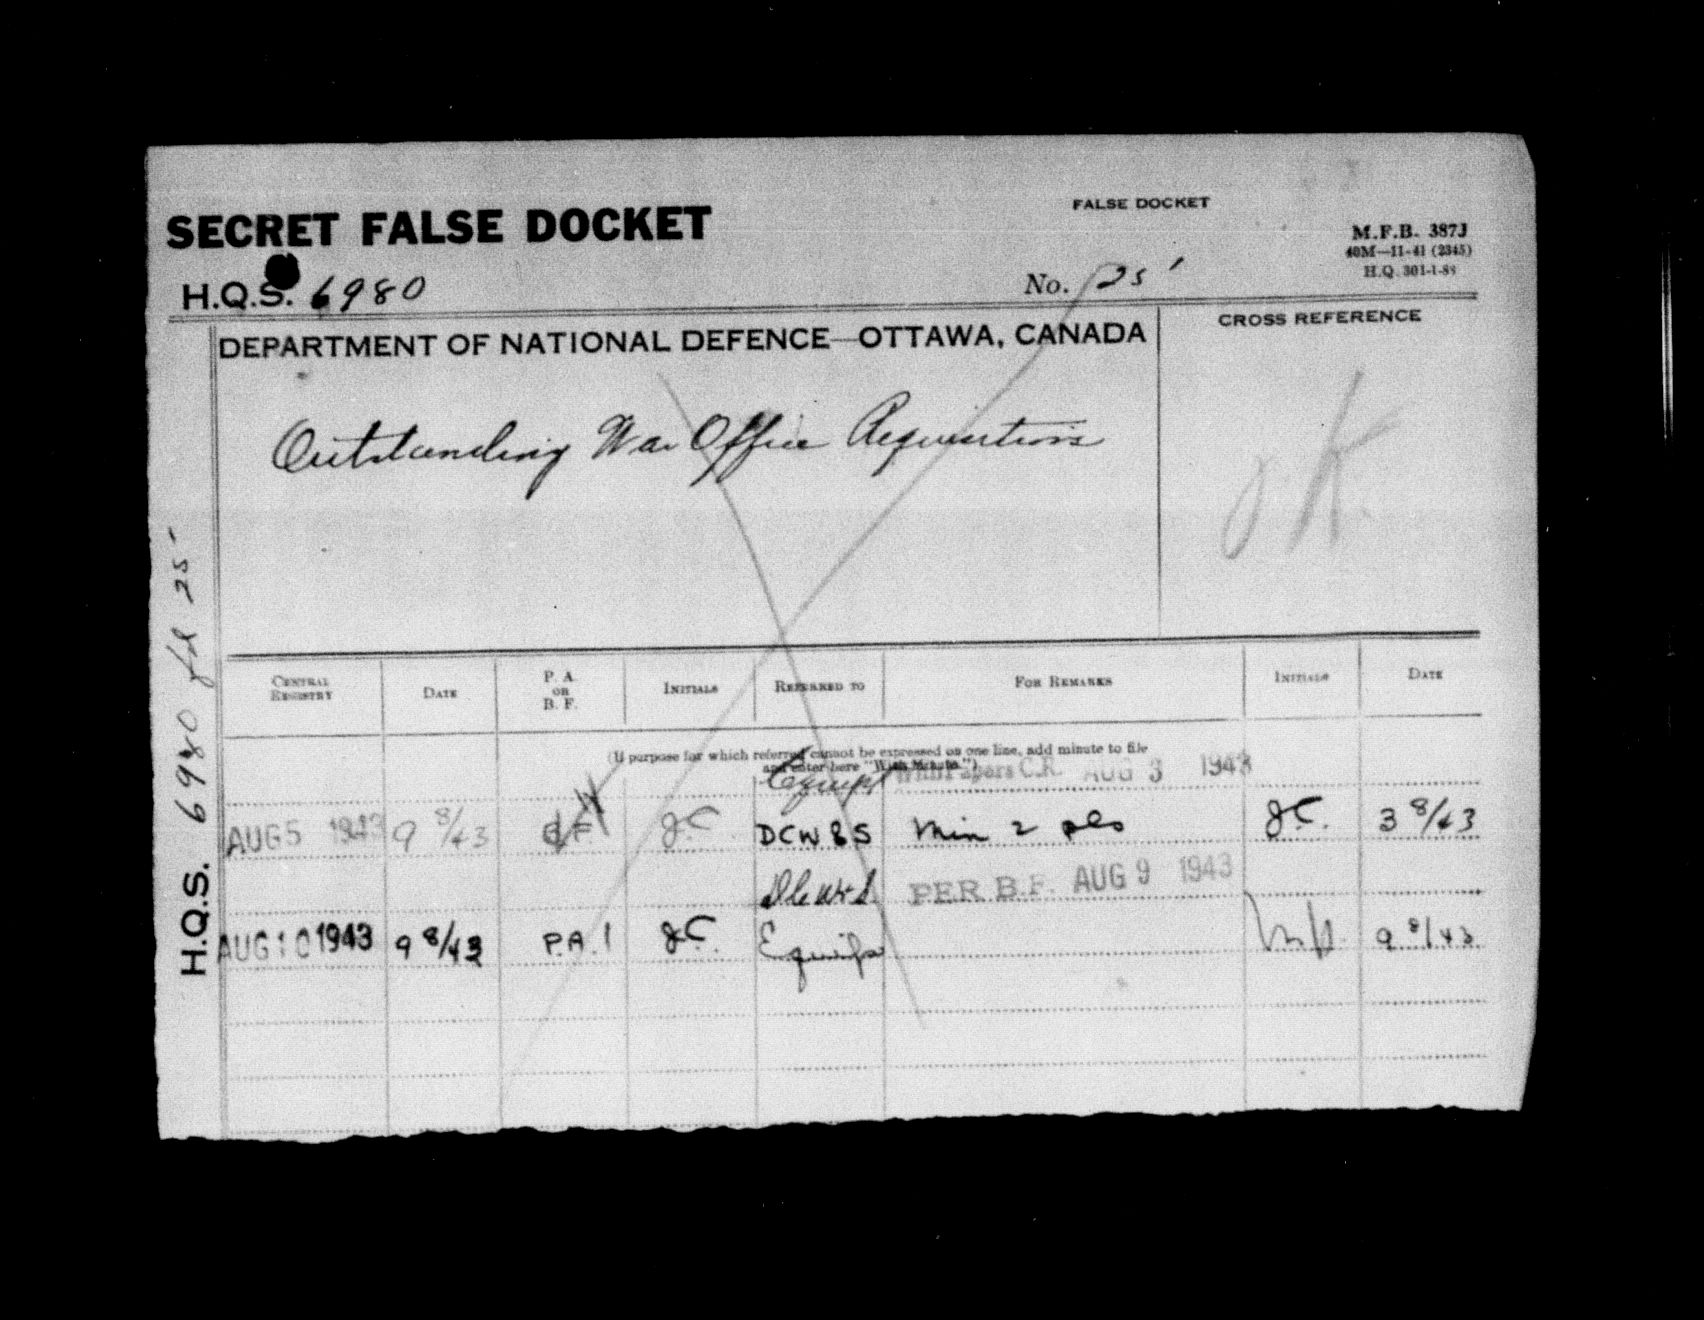 FALSE DOCKET
SECRET FALSE DOCKET
M.F.B. 387J
40M—11-41 (2345)
H.Q. 301-1-88
H.Q.S. 6980
No. 25
DEPARTMENT OF NATIONAL DEFENCE—OTTAWA, CANADA
CROSS REFERENCE
Outstanding War Office Requisitions
J.K.
H.Q.S. 6980 fd 25
CENTRAL REGISTRY
DATE
P. A. OR B. F.
INITIALS
REFERRED TO
FOR REMARKS
INITIALS
DATE
(If purpose for which referred cannot be expressed on one line, add minute to file
and enter here "With Minute.")
Equipt With Papers C.R. AUG 3 1943
AUG 5 1943 9 8/43 B.F. J.C. DCW&S Min 2 pls J.C. 3 8/43
DCW&S PER B.F. AUG 9 1943
AUG 10 1943 9 8/43 P.A. J.C. Equip 9 8/43